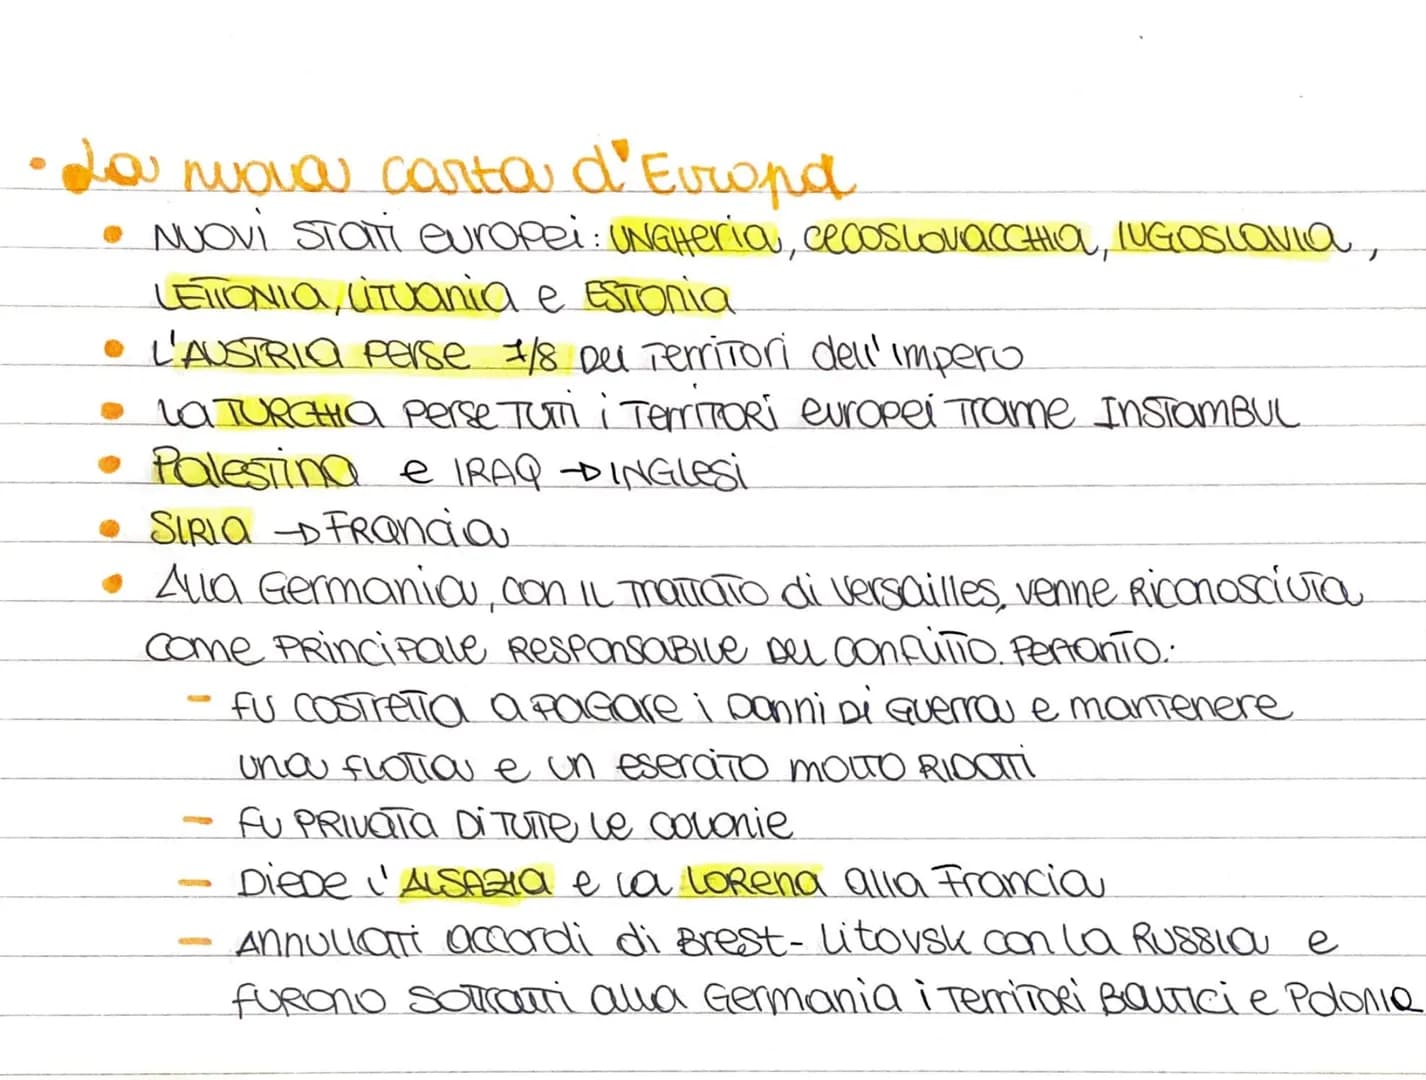 • La nuova carta d'Europa
• NUOVI STATI europei: UNGHeria, cecoslovacchia, IUGOSLAVIA,
LETTONIA, LITUania e ESTOnia
• L'AUSTRIA perse 7/8 dei Territori dell'impero
• La TURCHIA perse TUTTI i TerriTORi europei Trame INSTAMBUL
• Palestina e IRAQ → INGLesi
• SIRIA → FRancia
• Alla Germania, con IL TRATTATO di Versailles, venne RICONOSCIUTA
come PRINCIPale RESPONSABILE DEL CONFLITTO. PerTanTO:
- FU COSTretta a PAGare i Danni Di Guerra e manTenere
una FLOTTA e un esercito MOLTO RIDOTTI
- FU PRIVATA Di TUTTE Le colonie
- DieDe L'ALSAZIA e La LORena alla Francia
- ANNULLATI accordi di Brest-Litovsk con la RUSSIA e
FURONO SOTTRATTI alla Germania i TerriTORi BALTICI e Polonia